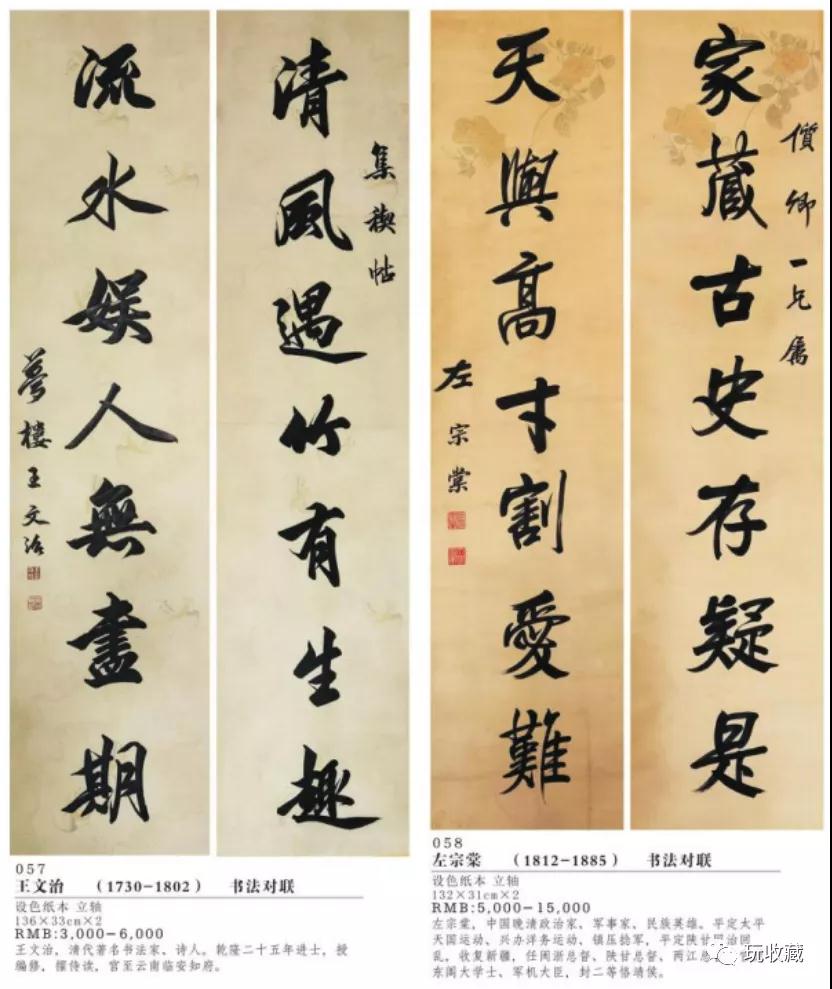 集禊帖
清風遇竹有生趣
流水娱人無盡期
夢樓王文治
卿一兄屬
家藏古史存疑是
天與高才割愛難
左宗棠
057
王文治 （1730-1802） 书法对联
设色纸本 立轴
136×33cm×2
RMB:3,000-6,000
王文治，清代著名书法家、诗人。乾隆二十五年进士，授
编修，擢侍读，官至云南临安知府。
058
左宗棠 （1812-1885） 书法对联
设色纸本 立轴
132×31cm×2
RMB:5,000-15,000
左宗棠，中国晚清政治家、军事家、民族英雄。平定太平
天国运动、兴办洋务运动、镇压捻军，平定陕甘治回
乱，收复新疆，任闽浙总督、陕甘总督、两江总
东阁大学士、军机大臣，封二等恪靖侯。
玩收藏